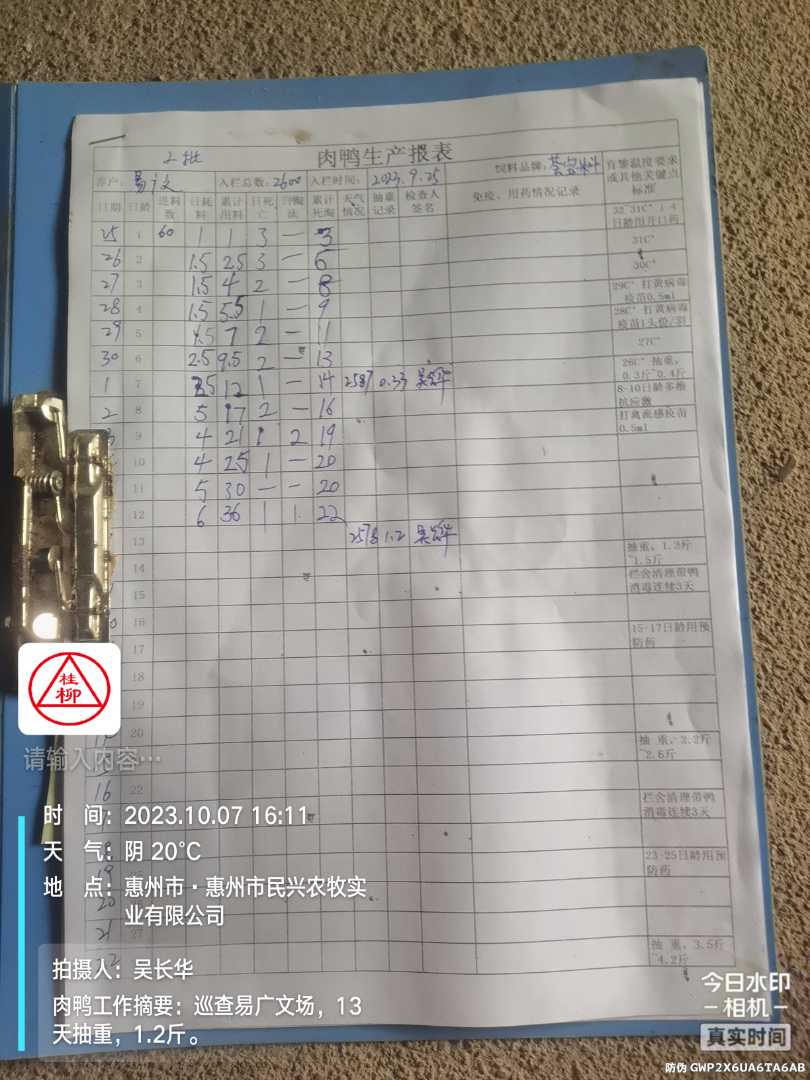 2批 肉鸭生产报表
养户：易广文 入栏总数：2600 入栏时间：2023.9.25 饲料品牌：
日期 日龄 进料数 日耗料 累计用料 日死亡 日淘汰 累计死淘 天气情况 抽重记录 检查人签名 免疫、用药情况记录 育雏温度要求或其他关键点标准
25 1 60 1 1 3 一 3 32-31C° 1-4日龄用开口药
26 2 1.5 2.5 3 一 6 31C°
27 3 1.5 4 2 一 8 30C°
28 4 1.5 5.5 1 一 9 29C° 打黄病毒疫苗0.5ml
29 5 1.5 7 2 一 11 28C° 打黄病毒疫苗1头份/羽
30 6 2.5 9.5 2 一 13 27C°
1 7 12 1 一 14 2587 0.33 吴长华 26C° 抽重，0.3斤~0.4斤
2 8 5 17 2 一 16 8-10日龄多维抗应激
3 9 4 21 1 2 19 打禽流感疫苗0.5ml
10 4 25 1 一 20
11 5 30 一 一 20
12 6 36 1 1 22
13 2578 1.2 吴长华
14 抽重，1.3斤~1.5斤
15 栏舍清理带鸭消毒连续3天
16
17 15-17日龄用预防药
18
19
20
抽重，2.2斤~2.6斤
16 22
栏舍清理带鸭消毒连续3天
19 23-25日龄用预防药
20
21
抽重，3.5斤~4.2斤
桂柳
请输入内容…
时 间：2023.10.07 16:11
天 气：阴 20°C
地 点：惠州市·惠州市民兴农牧实
业有限公司
拍摄人：吴长华
肉鸭工作摘要：巡查易广文场，13
天抽重，1.2斤。
今日水印
相机
真实时间
防伪 GWP2X6UA6TA6AB